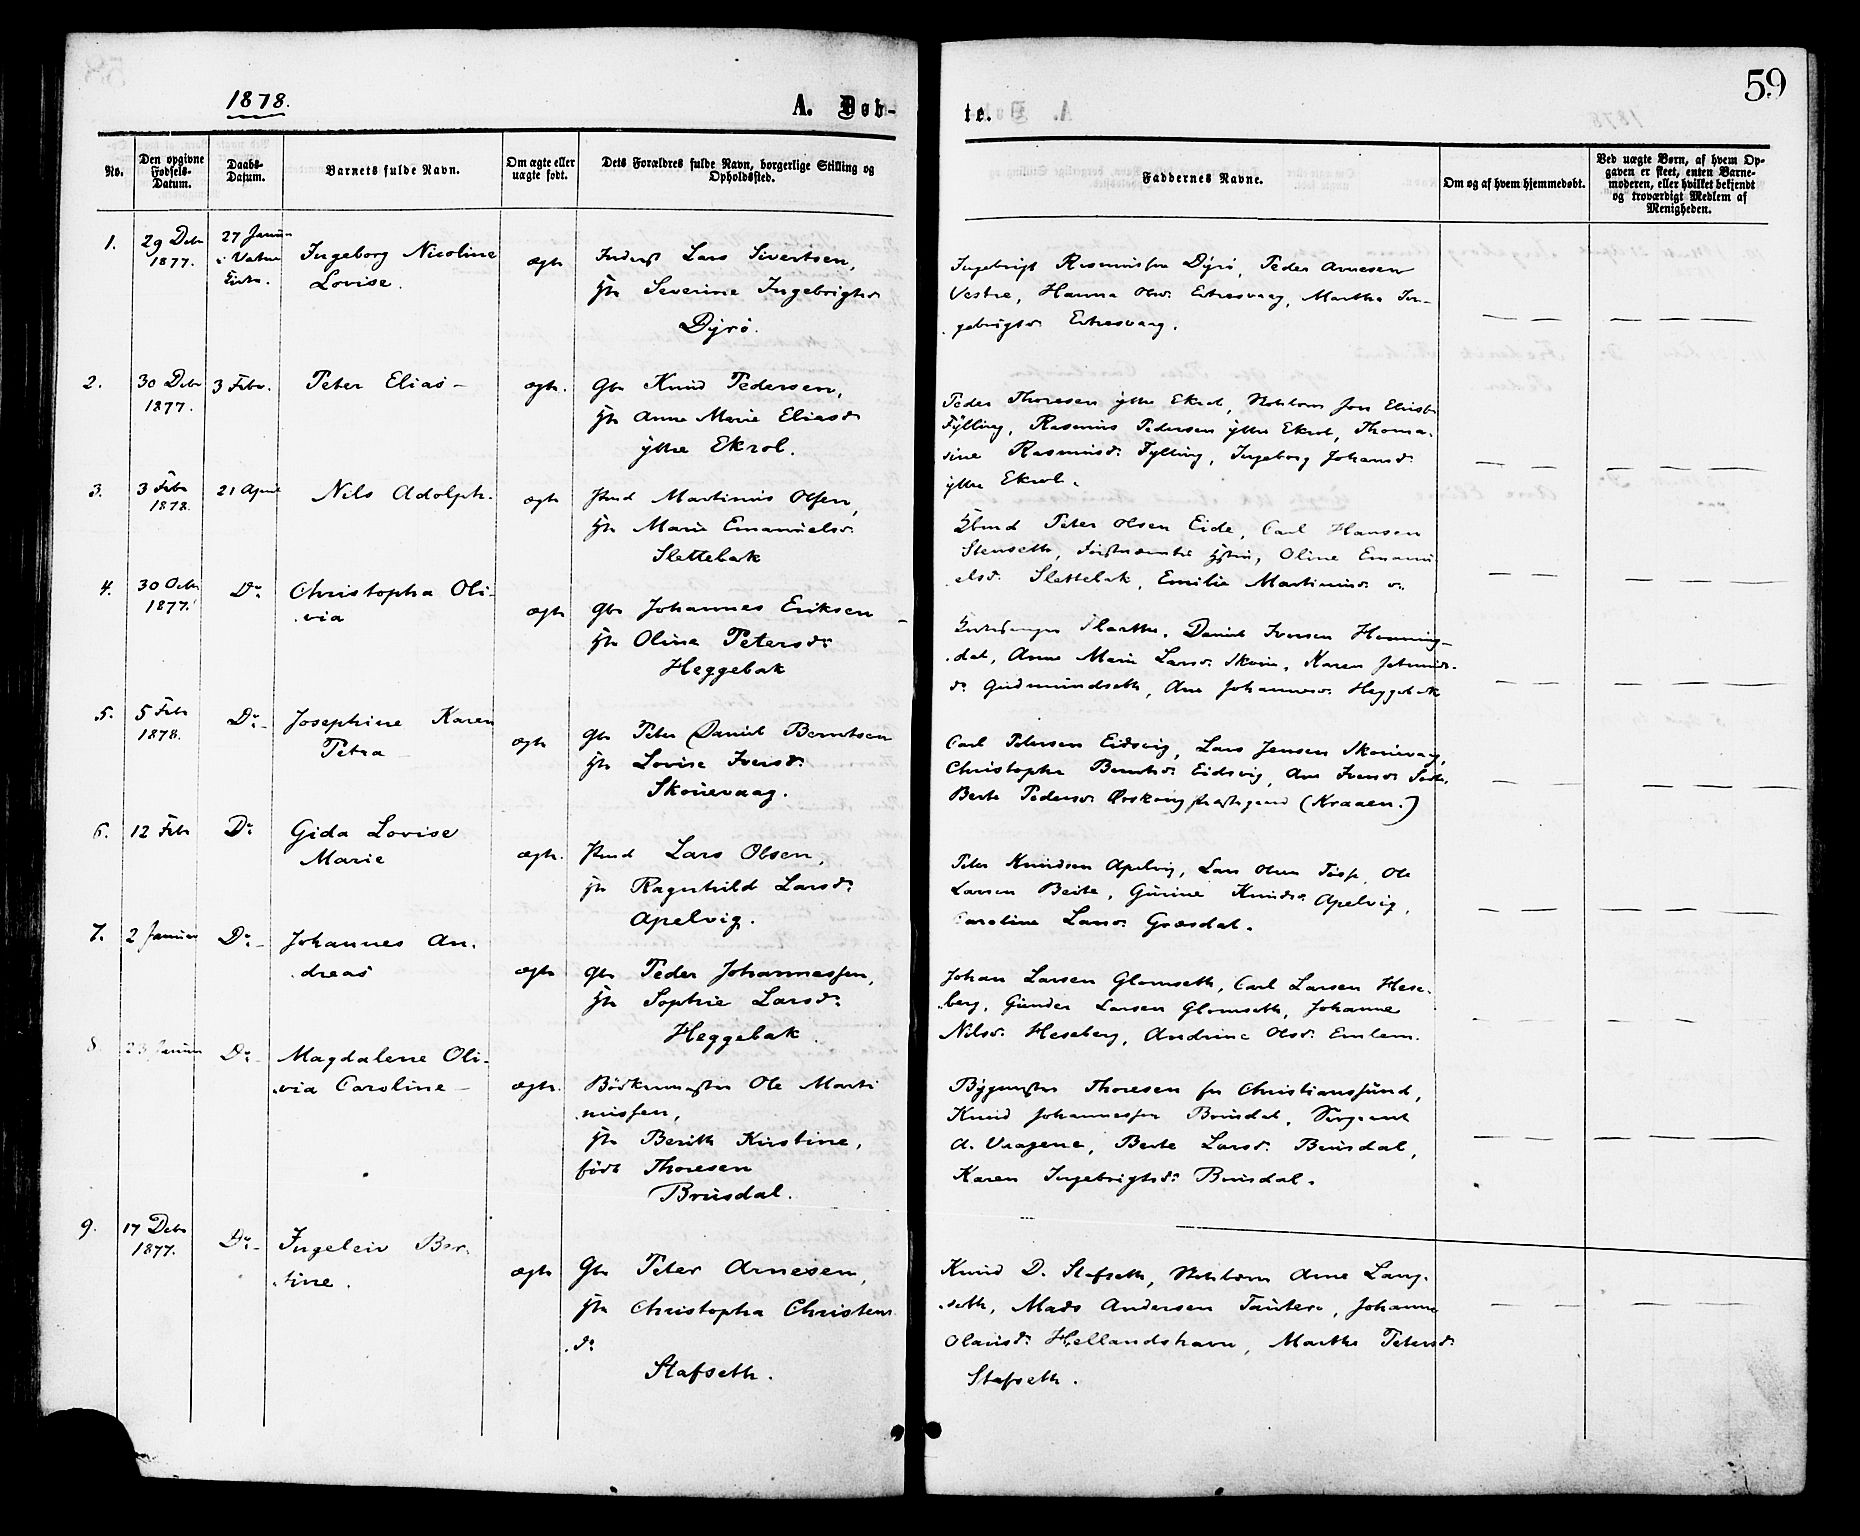 59
1878.
A. Døb-
te.
No.
Den opgivne
Fødsels-
Datum.
Daabs-
Datum.
Barnets fulde Navn.
Om ægte eller
uægte født.
Dets Forældres fulde Navn, borgerlige Stilling og
Opholdssted.
Faddernes Navne.
Om og af hvem hjemmedøbt.
Ved uægte Børn, af hvem Op-
gaven er skeet, enten Barne-
moderen, eller hvilket bekjendt
og troværdigt Medlem af
Menigheden.
1.
29 Debr
1877.
27 Januar
i Vatne
Kirke.
Ingeborg Nicoline
Lovise.
ægte
Inderst Lars Sivertsen,
Hu Severine Ingebrigtsdr
Dyrø.
Ingebrigt Rasmussen Dyrø, Peder Arnesen
Vestre, Hanna Olsdr Eltresvaag, Martha In-
gebrigtsdr
2.
30 Debr
1877.
3 Febr.
Peter Elias
ægte.
Gbr Knud Pedersen,
Hu Anne Marie Eliasdr
ytre Ekrol.
Peder Thoresen ytre Ekrol, Jon
Fylling, Rasmus Pedersen ytre Ekrol, Thoma-
sine Rasmusdr Fylling, Ingeborg Johansdr
ytre Ekrol.
3.
3 Febr
1878.
21 April
Nils Adolph.
ægte
Pmd Martinus Olsen,
Hu Marie Emanuelsdr
Slettebak
Peter Olsen Eide, Carl Hansen
Stenseth, Oline Emanu
elsdr Slettebak, Emilie Martinusdr
4.
30 Octbr
1877.
Do
Christopha Oli-
via
ægte
Gbr Johannes Eriksen
Hu Olina Petersdr
Heggebak
Daniel Iversen Henning-
dal, Anne Marie Larsdr Karen
dr Gudmundseth, Ane Johannesdr Heggebak
5.
5 Febr
1878.
Do
Josephine Karen
Petra
ægte
Gbr Peter Daniel Berntsen
Hu Lovise Iversdr
Skouevaag.
Carl Petersen Eidsvig, Lars Jensen Skouevaag,
Christopha Berntsdr Eidsvig, Ane Iversdr
Berte Pedersdr Ørskoug Præstegaard (Kraaen.)
6.
12 Febr
Do
Gida Lovise
Marie
ægte.
Pmd Lars Olsen,
Hu Ragnhild Larsdr
Apelvig.
Peter Knudsen Apelvig, Lars Olsen Ole
Larsen Beite, Gurine Knudsdr Apelvig,
Caroline Larsdr Græsdal.
7.
2 Januar
Do
Johannes An-
dreas
ægte
Gbr Peder Johannessen,
Hu Sophie Larsdr
Heggebak.
Johan Larsen Glomseth, Carl Larsen Hese-
berg, Gunder Larsen Glomseth, Johanne
Nilsdr Heseberg, Andrine Olsdr Emlem.
8.
23 Januar
Do
Magdalene Oli-
via Caroline
ægte.
Bødkermester Ole Marti
nussen,
Hu Berith Kirstine,
født Thoresen
Brusdal.
Bygmester Thoresen fra Christianssund,
Knud Johannessen Brusdal, Sergeant
A. Vaagene, Berte Larsdr Brusdal,
Karen Ingebrigtsdr Brusdal.
9.
17 Debr
1877.
Do
Ingeleiv Ber-
tine.
ægte
Gbr Peter Arnesen,
Hu Christopha Christens
dr
Stafseth.
Knud D. Stafseth, Arne Lang-
seth, Mads Andersen Tautere, Johanne
Olausdr Hellandshavn, Marthe Petersdr
Stafseth.